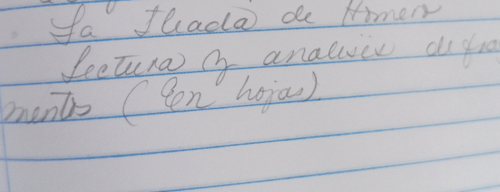 La Iliada de Homero
Lectura y analisis de frag
mentos (En hojas)